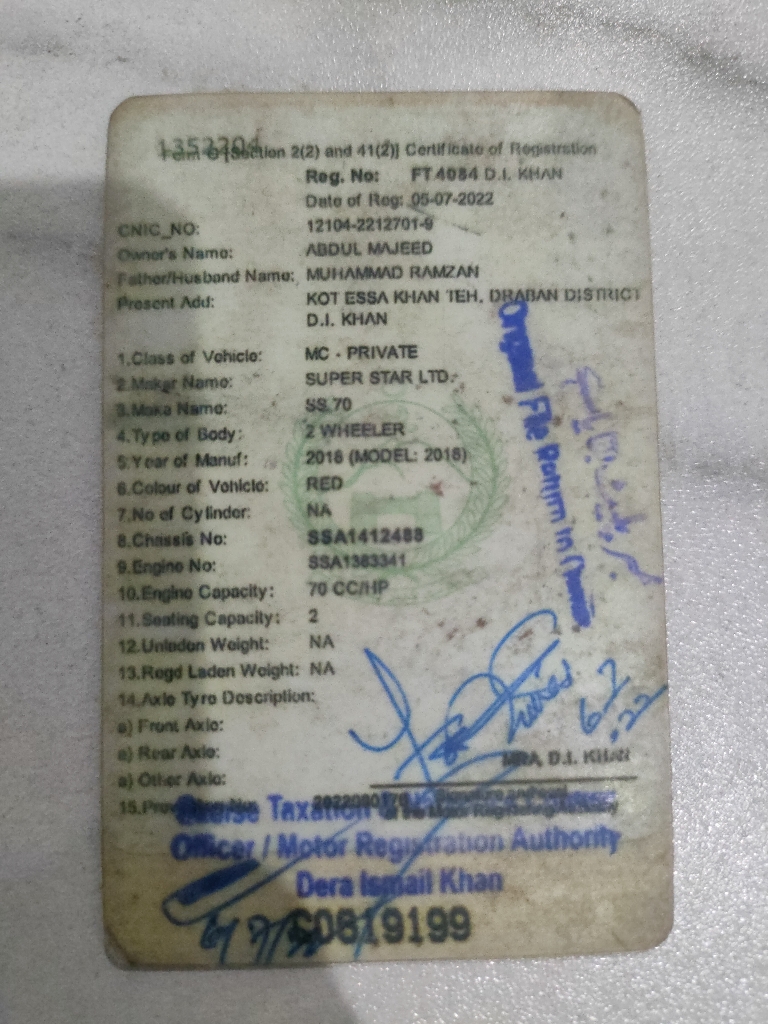 1352204
Form G [Section 2(2) and 41(2)] Certificate of Registration
Reg. No: FT 4084 D.I. KHAN
Date of Reg: 05-07-2022
CNIC_NO: 12104-2212701-9
Owner's Name: ABDUL MAJEED
Father/Husband Name: MUHAMMAD RAMZAN
Present Add: KOT ESSA KHAN TEH. DRABAN DISTRICT
D.I. KHAN
1.Class of Vehicle: MC - PRIVATE
2.Maker Name: SUPER STAR LTD.
3.Make Name: SS 70
4.Type of Body: 2 WHEELER
5.Year of Manuf: 2018 (MODEL: 2018)
6.Colour of Vehicle: RED
7.No of Cylinder: NA
8.Chassis No: SSA1412488
9.Engine No: SSA1383341
10.Engine Capacity: 70 CC/HP
11.Seating Capacity: 2
12.Unladen Weight: NA
13.Regd Laden Weight: NA
14.Axle Tyre Description:
a) Front Axle:
a) Rear Axle:
a) Other Axle:
Original File Return in
MRA, D.I. KHAN
Excise Taxation
Officer / Motor Registration Authority
Dera Ismail Khan
0819199